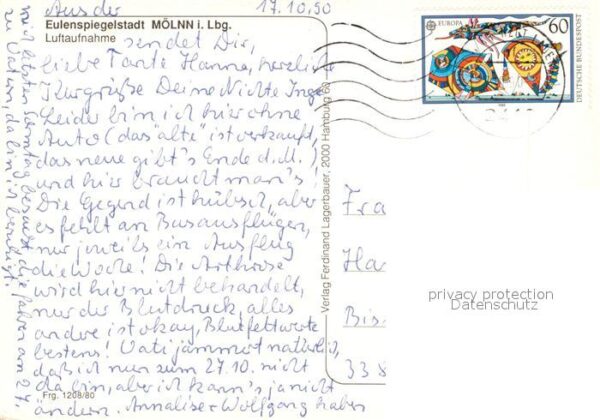 Aus der 17.10.90
Eulenspiegelstadt MÖLNN i. Lbg.
Luftaufnahme
sendet Dir,
liebe Tante Hanna, herzliche
Kurgrüße Deine Nichte Inge
Leider bin ich hier ohne
Auto (das "alte" ist verkauft,
das neue gibt's Ende d. M.)
und hier braucht man's!
Die Gegend ist hübsch, aber
es fehlt an Busausflügen,
nur jeweils ein Ausflug
die Woche! Die Arthrose
wird hier nicht behandelt,
nur der Blutdruck, alles
andre ist okay, Blutfettwerte
bestens! Vati jammert natürlich,
daß ich nun zum 27.10. nicht
da bin, aber ich kann's ja nicht
ändern. Annaliese + Wolfgang haben
mich letzten Sonntag besucht, die fahren am 24.
zu Vatern, da bin ich beruhigt.
Frg. 1208/80
Verlag Ferdinand Lagerbauer, 2000 Hamburg 63
EUROPA
60
DEUTSCHE BUNDESPOST
Fra
Ha
Bis
338
privacy protection
Datenschutz